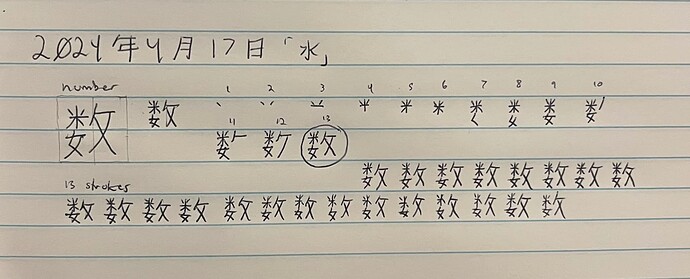 2024年4月17日「水」
number 1 2 3 4 5 6 7 8 9 10
数 数 米 娄
11 12 13
数
数 数 数 数 数 数 数 数
13 strokes
数 数 数 数 数 数 数 数 数 数 数 数 数 数